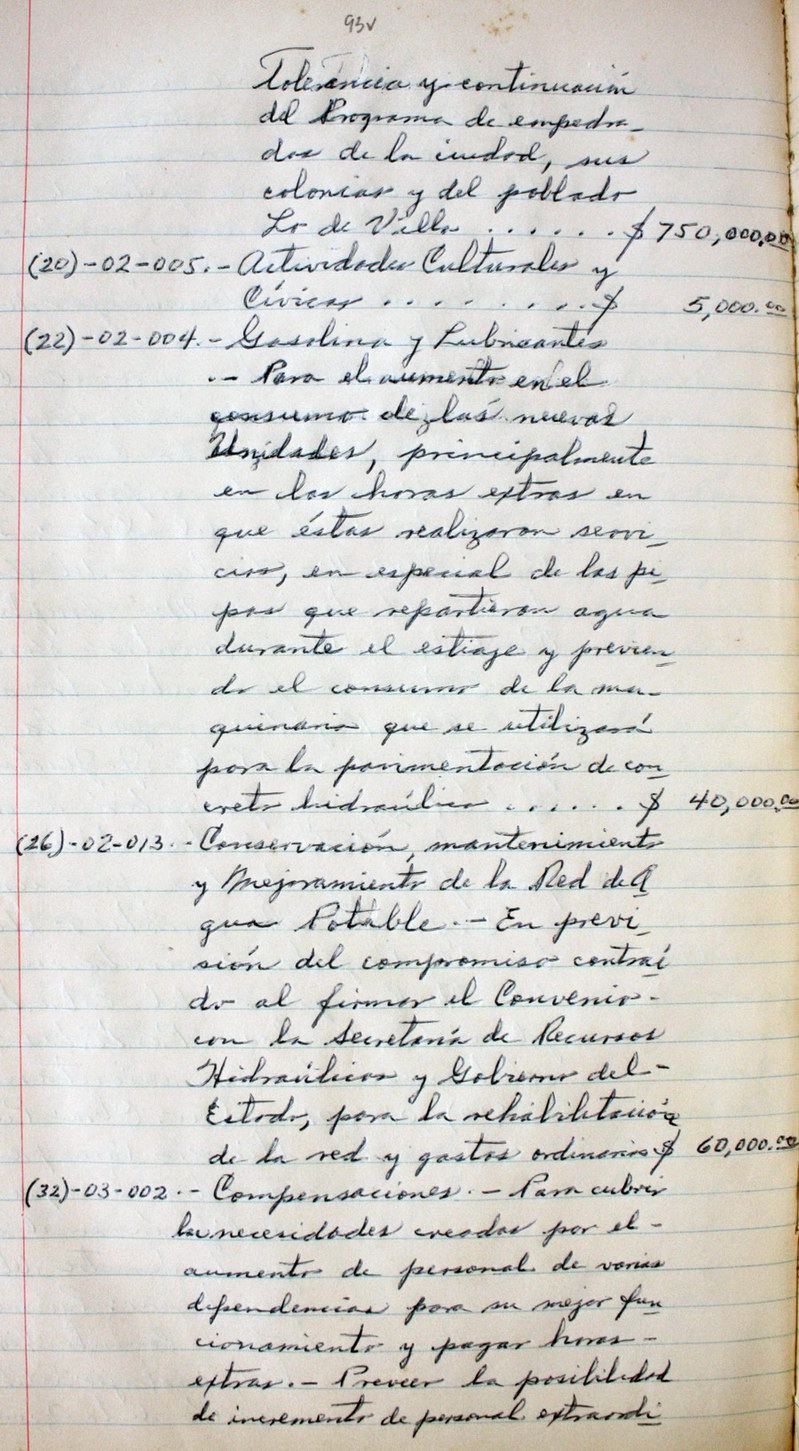 93v
Tolerancia y continuación
del Programa de empedra_
dos de la ciudad, sus
colonias y del poblado
Lo de Villa . . . . . . $ 750,000.00
(20)-02-005.- Actividades Culturales y
Cívicas . . . . . . . . $ 5,000.00
(22)-02-004.- Gasolina y Lubricantes
.- Para el aumento en el
consumo de las nuevas
Unidades, principalmente
en las horas extras en
que éstas realizaron servi_
cios, en especial de las pi_
pas que repartieron agua
durante el estiaje y previen_
do el consumo de la ma_
quinaria que se utilizará
para la pavimentación de con_
creto hidraúlico . . . . . . $ 40,000.00
(26)-02-013.- Conservación, mantenimiento
y Mejoramiento de la Red de A
gua Potable.- En previ_
sión del compromiso contraí
do al firmar el Convenio-
con la Secretaría de Recursos
Hidraúlicos y Gobierno del-
Estado, para la rehabilitación
de la red y gastos ordinarios $ 60,000.00
(32)-03-002.- Compensaciones.- Para cubrir
las necesidades creadas por el-
aumento de personal de varias
dependencias para su mejor fun
cionamiento y pagar horas-
extras.- Preveer la posibilidad
de incremento de personal extraordi